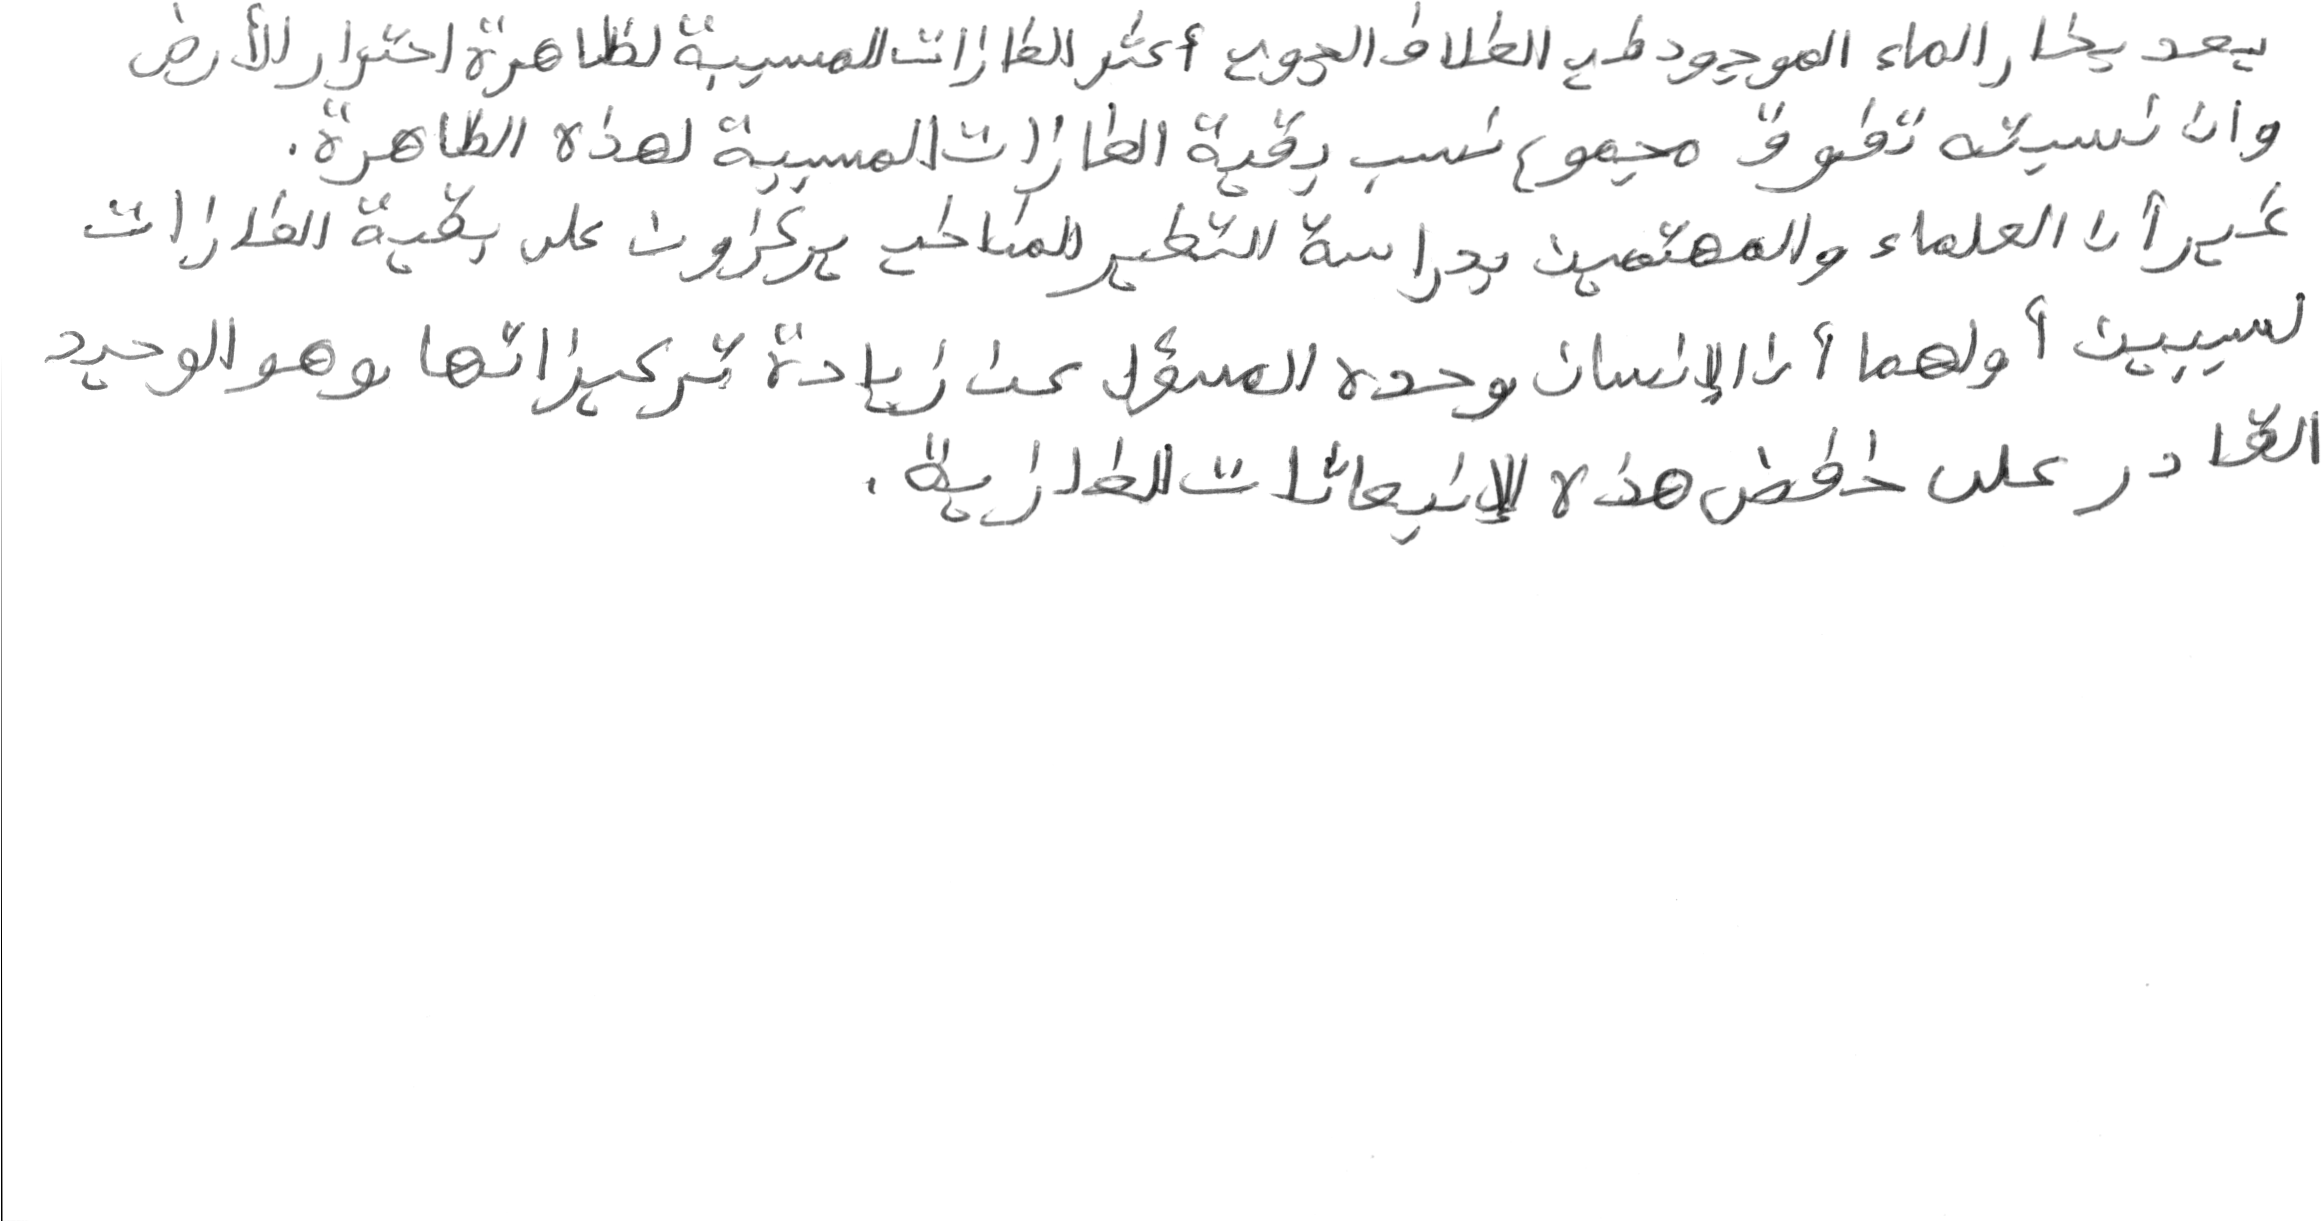 يعد بخار الماء الموجود في الغلاف الجوي أكثر الغازات المسببة لظاهرة احترار الأرض
وان نسبته تفوق مجموع نسب بقية الغازات المسببة لهذه الظاهرة.
غير أن العلماء والمهتمين بدراسة التغير المناخي يركزون على بقية الغازات
لسببين أولهما أن الإنسان وحده المسؤل عن زيادة تركيزاتها وهو الوحيد
القادر على خفض هذه الإنبعاثات الغازية.